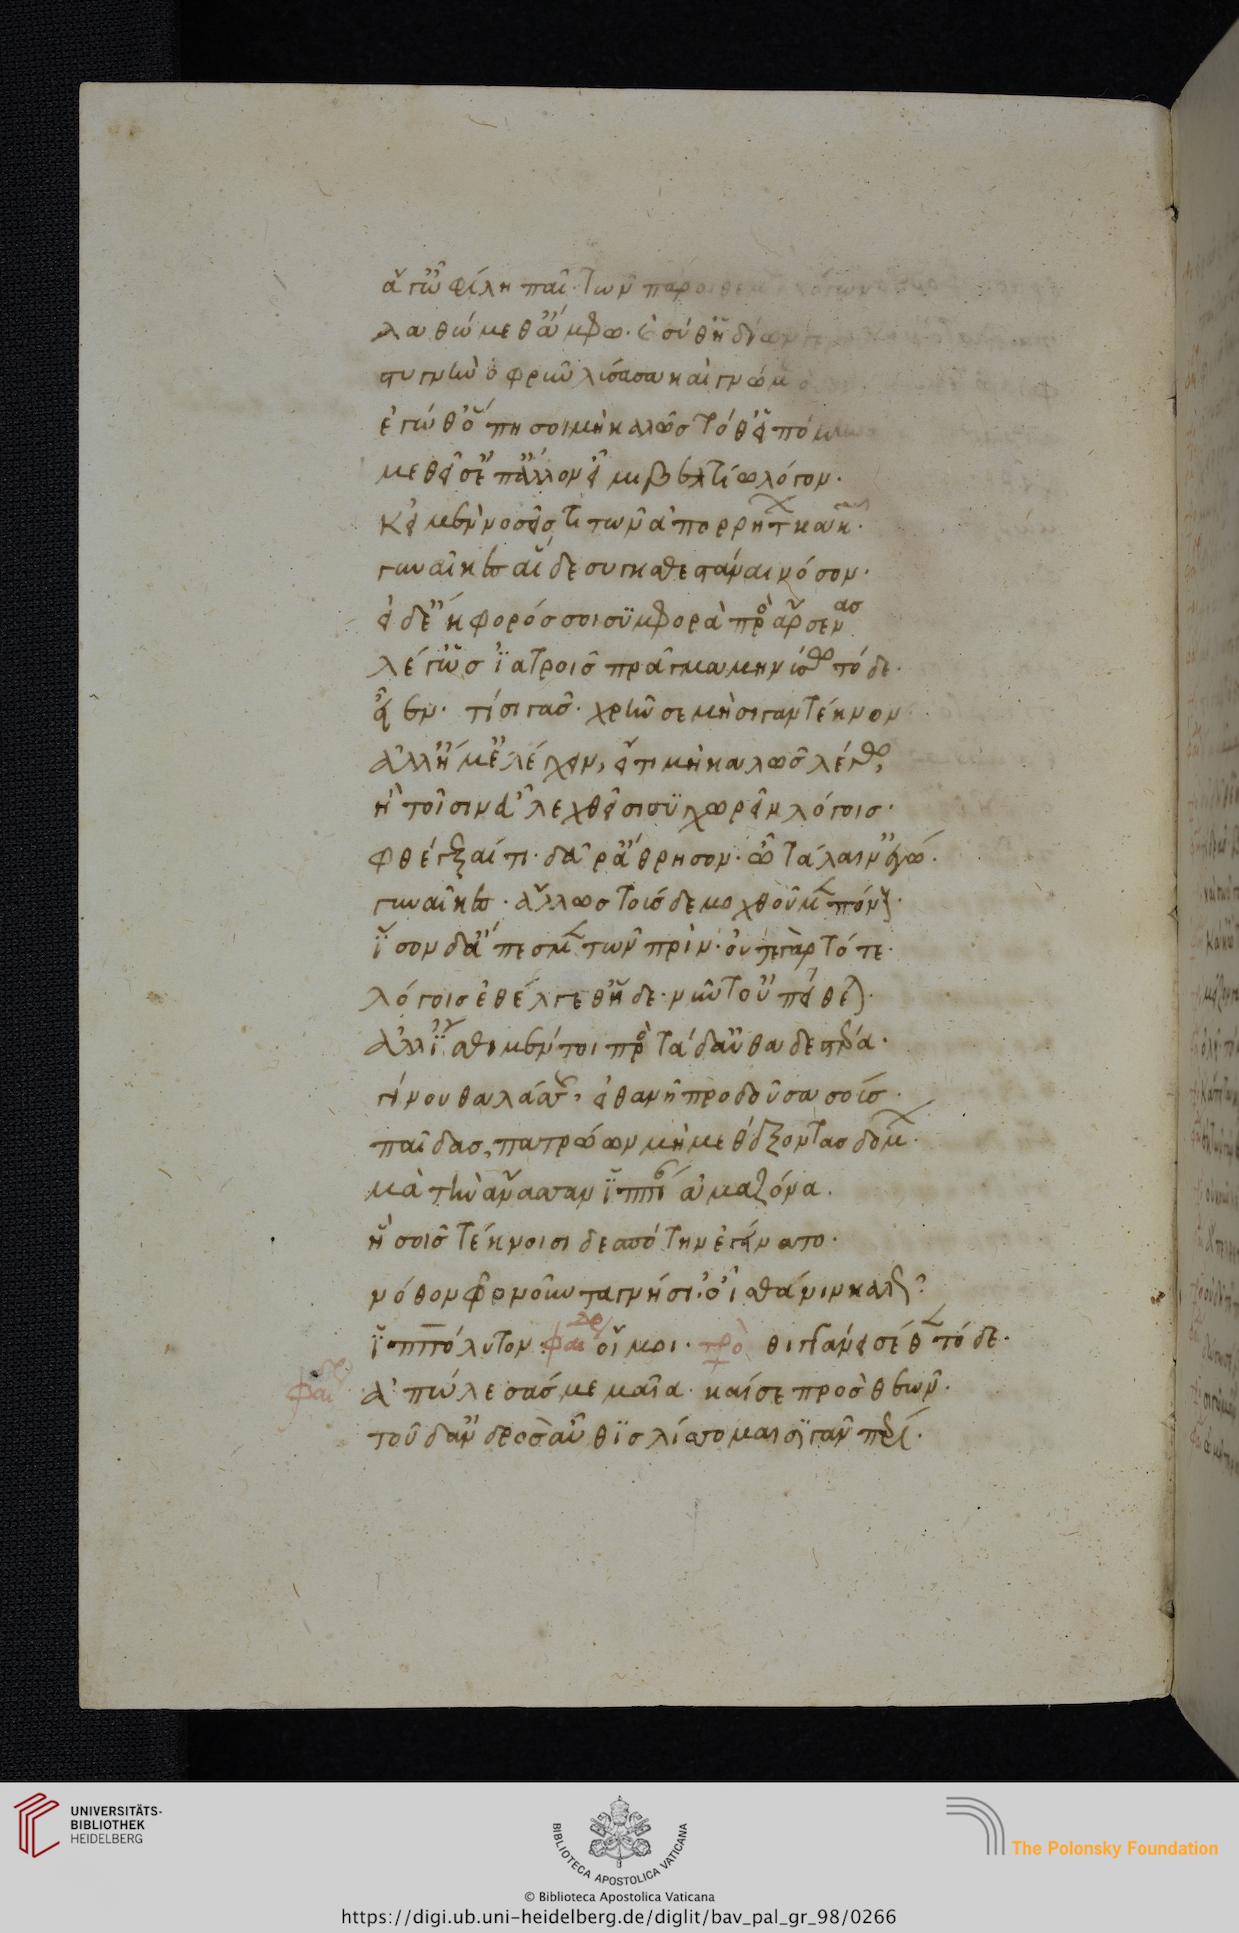 ἄγ' ὦ φίλη παῖ· τῶν πάροιθε μὲν λόγων
λαθώμεθ' ἄμφω· καὶ σύ θ' ἡδίων
στυγνὴν ὀφρὺν λύσασα καὶ γνώμης
ἐγώ θ' ὅπη σοι μὴ καλῶς τόθ' εἱπόμην
μεθεῖσ' ἐπ' ἄλλον εἶμι βελτίω λόγον·
κεἰ μὲν νοσεῖς τι τῶν ἀπορρήτων κακῶν·
γυναῖκες αἵδε συγκαθιστάναι νόσον·
εἰ δ' ἔκφορός σοι συμφορὰ πρὸς ἄρσενας
λέγ' ὡς ἰατροῖς πρᾶγμα μηνυθῇ τόδε·
εἶεν· τί σιγᾶς· χρῆν σε μὴ σιγᾶν τέκνον
ἀλλ' ἤ μ' ἐλέγχειν, εἴ τι μὴ καλῶς λέγω,
ἢ τοῖσιν εὖ λεχθεῖσι συγχωρεῖν λόγοις·
φθέγξαί τι· δεῦρ' ἄθρησον· ὦ τάλαιν' ἐγώ·
γυναῖκες· ἄλλως τούσδε μοχθοῦμεν πόνους·
ἴσον δ' ἄπεσμεν τῶν πρίν· οὔτε γὰρ τότε
λόγοις ἐθέλγεθ' ἥδε· νῦν τ' οὐ πείθεται·
ἀλλ' ἴσθι μέντοι πρὸς τάδ' αὐθαδεστέρα
γίνου θαλάσσης, εἰ θανῇ προδοῦσα σοὺς
παῖδας, πατρῴων μὴ μεθέξοντας δόμων·
μὰ τὴν ἄνασσαν ἱππίαν ἀμαζόνα·
ἣ σοῖς τέκνοισι δεσπότην ἐγείνατο·
νόθον φρονοῦντα γνήσι'· οἶσθά νιν καλῶς·
ἱππόλυτον· φαι οἴμοι· τρο θιγγάνει σέθεν τόδε·
φαι ἀπώλεσάς με μαῖα· καί σε πρὸς θεῶν·
τοῦδ' ἀνδρὸς αὖθις λίσσομαι σιγᾶν πέρι·
UNIVERSITÄTS-
BIBLIOTHEK
HEIDELBERG
BIBLIOTECA APOSTOLICA VATICANA
The Polonsky Foundation
© Biblioteca Apostolica Vaticana
https://digi.ub.uni-heidelberg.de/diglit/bav_pal_gr_98/0266